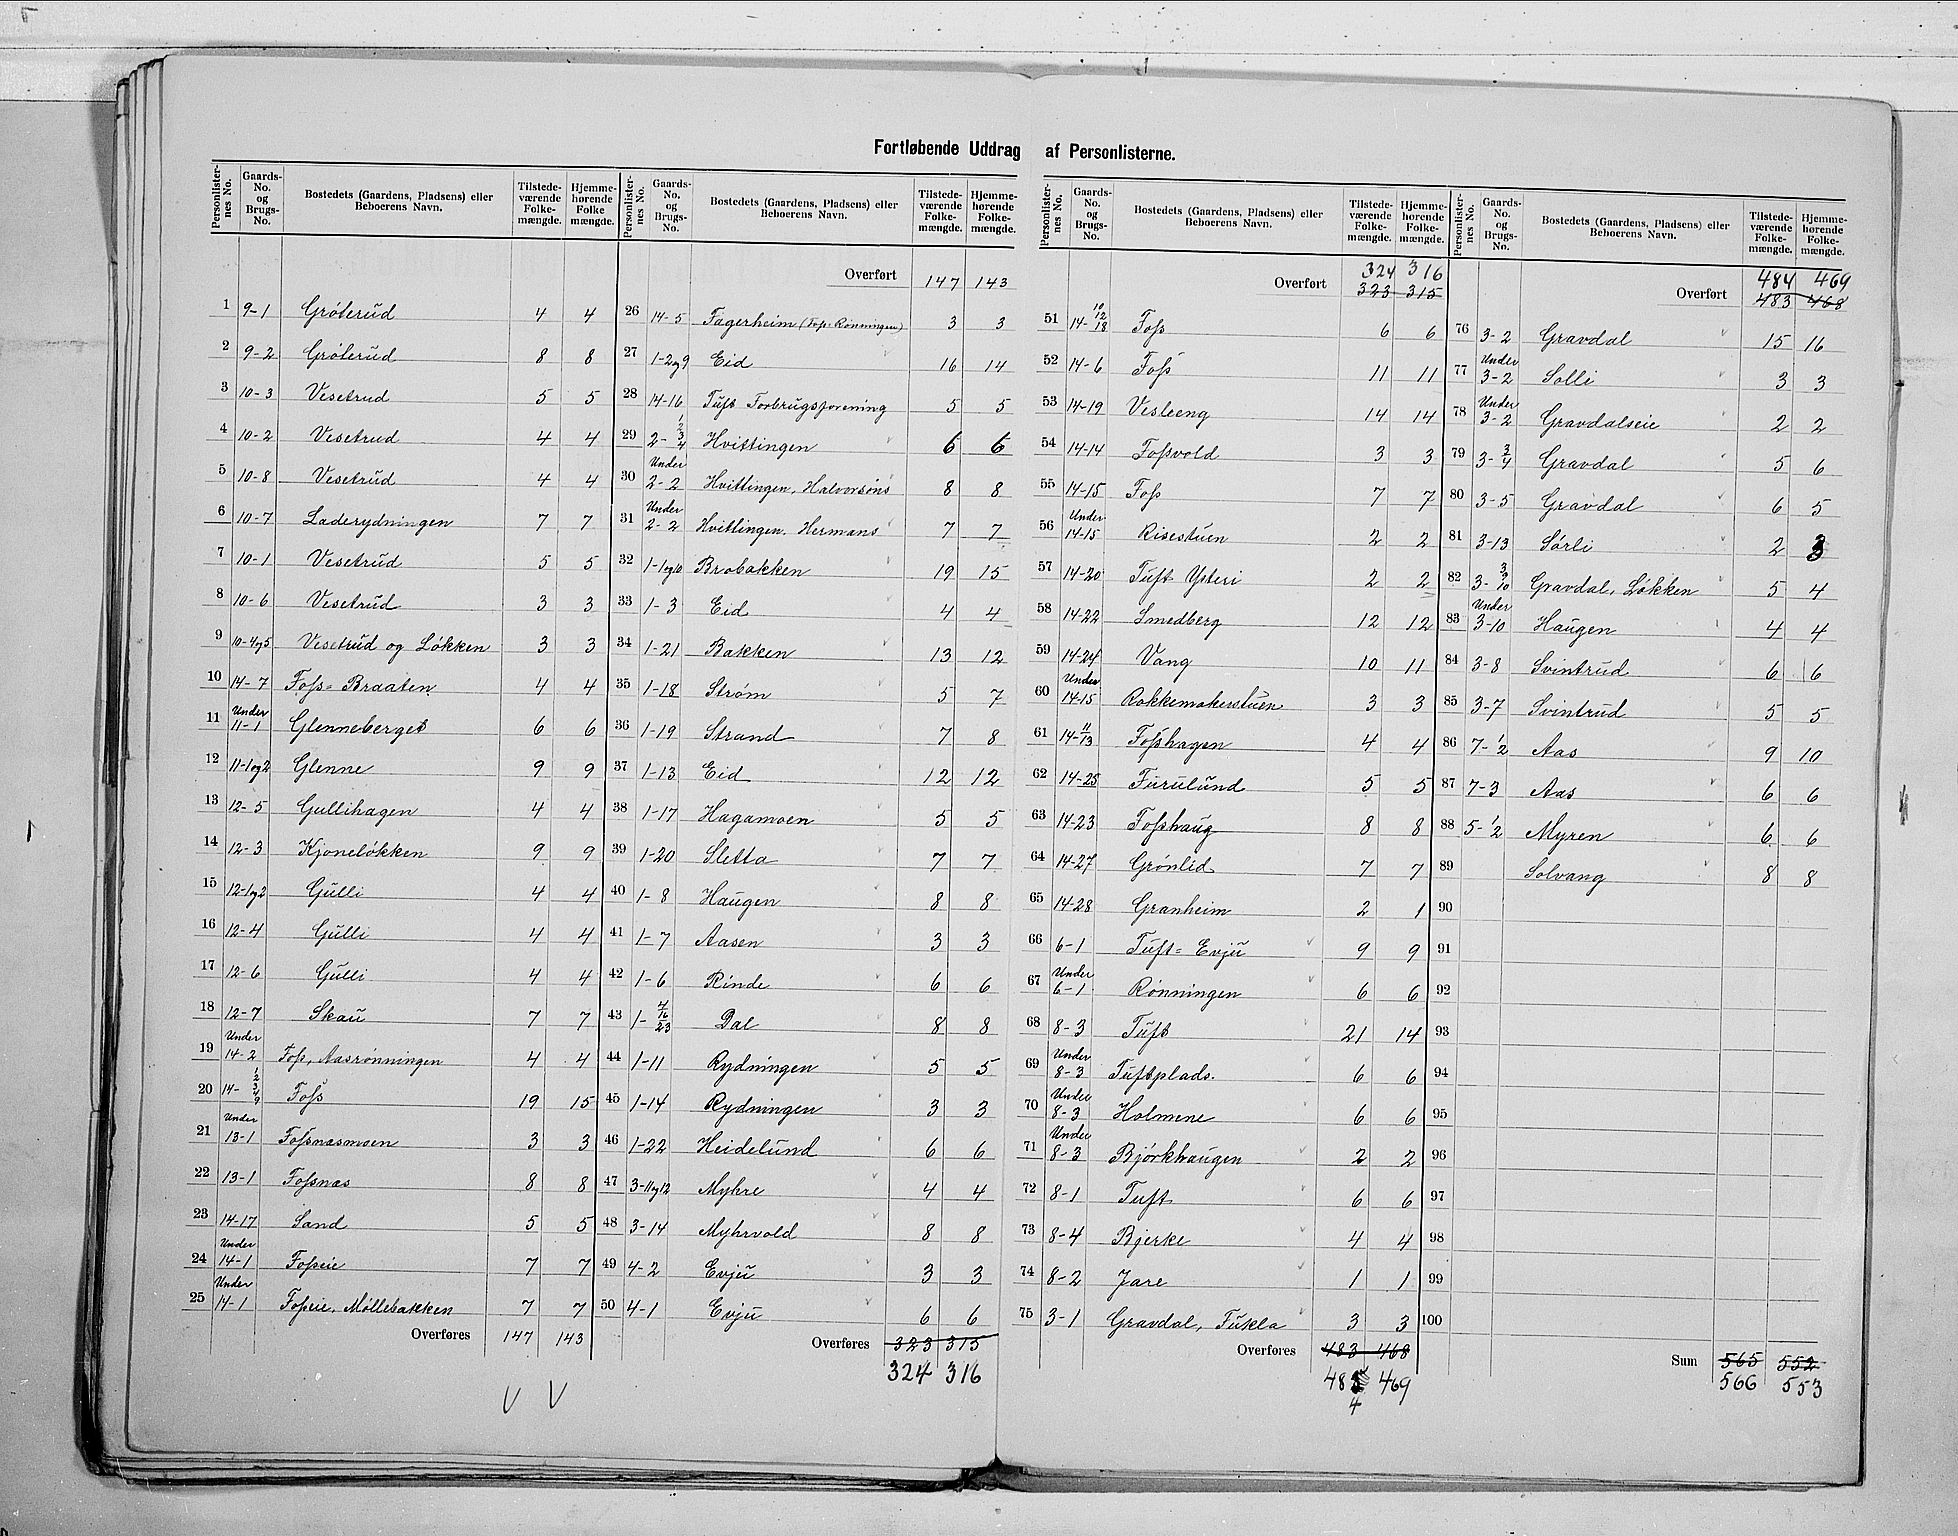 Fortløbende Uddrag af Personlisterne.
Personlisternes No. | Gaards-No. og Brugs-No. | Bostedets (Gaardens, Pladsens) eller Beboerens Navn. | Tilstedeværende Folkemængde. | Hjemmehørende Folkemængde.
1 9-1 Gróterud 4 4
2 9-2 Gróterud 8 8
3 10-3 Vesetrud 5 5
4 10-2 Vesetrud 4 4
5 10-8 Vesetrud 4 4
6 10-7 Laderydningen 7 7
7 10-1 Vesetrud 5 5
8 10-6 Vesetrud 3 3
9 10-4og5 Vesetrud og Løkken 3 3
10 14-7 Foss-Braaten 4 4
11 Under 11-1 Glenneberget 6 6
12 11-1og2 Glenne 9 9
13 12-5 Gullihagen 4 4
14 12-3 Kjoneløkken 9 9
15 12-1og2 Gulli 4 4
16 12-4 Gulli 4 4
17 12-6 Gulli 4 4
18 12-7 Skau 7 7
19 Under 14-2 Foss, Aasrønningen 4 4
20 14-2 3 4 9 Foss 19 15
21 Under 13-1 Fossnasmoen 3 3
22 13-1 Fossnas 8 8
23 14-17 Sand 5 5
24 Under 14-1 Fosseie 7 7
25 Under 14-1 Fosseie, Møllebakken 7 7
Overføres 147 143
Personlisternes No. | Gaards-No. og Brugs-No. | Bostedets (Gaardens, Pladsens) eller Beboerens Navn. | Tilstedeværende Folkemængde. | Hjemmehørende Folkemængde.
Overført 147 143
26 14-5 Fagerheim (Foss-Rønningen) 3 3
27 1-2og9 Eid 16 14
28 14-16 Tuft Forbrugsforening 5 5
29 2-1 3 4 Hvittingen 6 6
30 Under 2-2 Hvittingen, Halvorsøns 8 8
31 Under 2-2 Hvittingen. Hermans 7 7
32 1-1og10 Brobakken 19 15
33 1-3 Eid 4 4
34 1-21 Bakken 13 12
35 1-18 Strøm 5 7
36 1-19 Strand 7 8
37 1-13 Eid 12 12
38 1-17 Hagamoen 5 5
39 1-20 Sletta 7 7
40 1-8 Haugen 8 8
41 1-7 Aasen 3 3
42 1-6 Rinde 6 6
43 1-4 16 23 Dal 8 8
44 1-11 Rydningen 5 5
45 1-14 Rydningen 3 3
46 1-22 Heidelund 6 6
47 3-11og12 Myhre 4 4
48 3-14 Myhrvold 8 8
49 4-2 Evju 3 3
50 4-1 Evju 6 6
Overføres 323 315
324 316
V V
Personlisternes No. | Gaards-No. og Brugs-No. | Bostedets (Gaardens, Pladsens) eller Beboerens Navn. | Tilstedeværende Folkemængde. | Hjemmehørende Folkemængde.
324 316
Overført 323 315
51 14-10 12 18 Foss 6 6
52 14-6 Foss 11 11
53 14-19 Vesleeng 14 14
54 14-14 Fossvold 3 3
55 14-15 Foss 7 7
56 Under 14-15 Risestuen 2 2
57 14-20 Tuft Ysteri 2 2
58 14-22 Smedberg 12 12
59 14-24 Vang 10 11
60 Under 14-15 Rokkemakerstuen 3 3
61 14-11 13 Fosshagen 4 4
62 14-25 Furulund 5 5
63 14-23 Fosshaug 8 8
64 14-27 Grønlid 7 7
65 14-28 Granheim 2 1
66 6-1 Tuft-Evju 9 9
67 Under 6-1 Rønningen 6 6
68 8-3 Tuft 21 14
69 Under 8-3 Tuftplads. 6 6
70 Under 8-3 Holmene 6 6
71 Under 8-3 Bjørkhaugen 2 2
72 8-1 Tuft 6 6
73 8-4 Bjerke 4 4
74 8-2 Jare 1 1
75 3-1 Gravdal, Tukla 3 3
Overføres 483 468
48 469
4
Personlisternes No. | Gaards-No. og Brugs-No. | Bostedets (Gaardens, Pladsens) eller Beboerens Navn. | Tilstedeværende Folkemængde. | Hjemmehørende Folkemængde.
484 469
Overført 483 468
76 3-2 Gravdal 15 16
77 Under 3-2 Solli 3 3
78 Under 3-2 Gravdalseie 2 2
79 3-3 4 Gravdal 5 6
80 3-5 Gravdal 6 5
81 3-13 Sørli 2 3
82 3-9 10 Gravdal, Løkken 5 4
83 Under 3-10 Haugen 4 4
84 3-8 Svintrud 6 6
85 3-7 Svintrud 5 5
86 7-1/2 Aas 9 10
87 7-3 Aas 6 6
88 5-1/2 Myren 6 6
89 Solvang 8 8
90
91
92
93
94
95
96
97
98
99
100
Sum 565 552
566 553